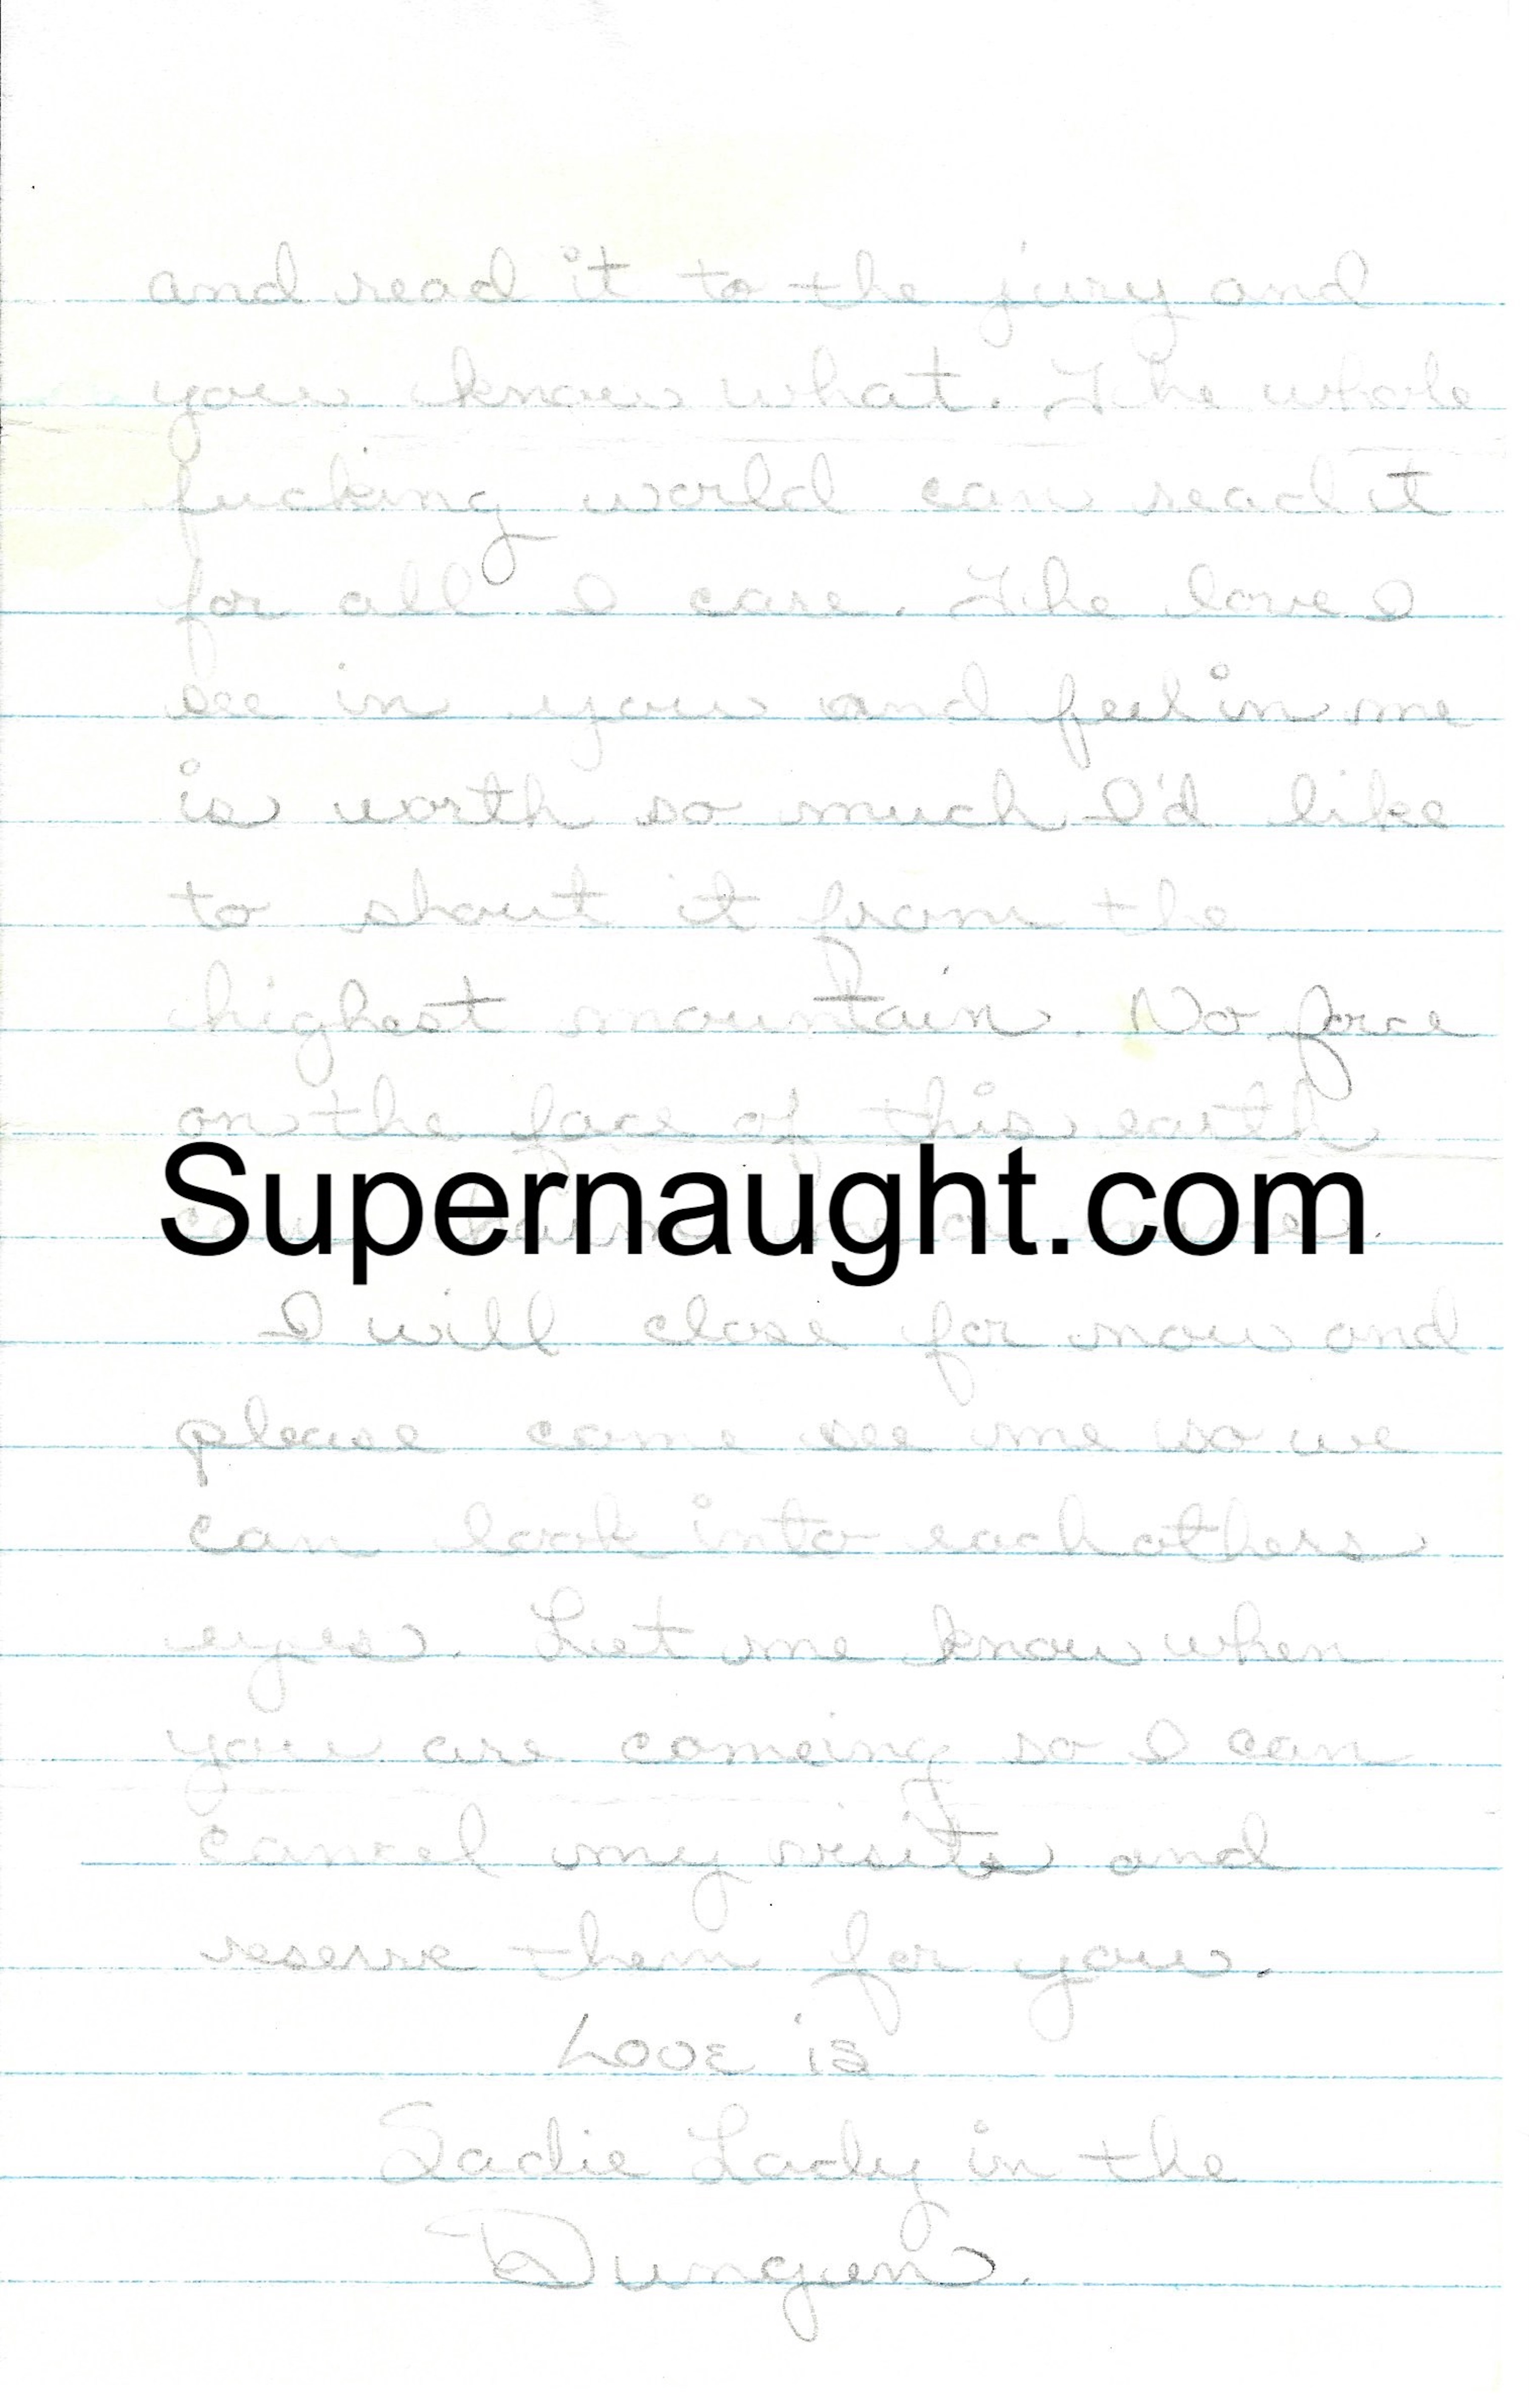 and read it to the jury and
you know what. The whole
fucking world can read it
for all I care. The love I
see in you and feel in me
is worth so much I'd like
to shout it from the
highest mountain. No force
on the face of this earth
Supernaught.com
I will close for now and
please come see me so we
can look into eachothers
eyes. Let me know when
you are comeing so I can
cancel my visits and
reserve them for you.
Love is
Sadie Lady in the
Dungen.